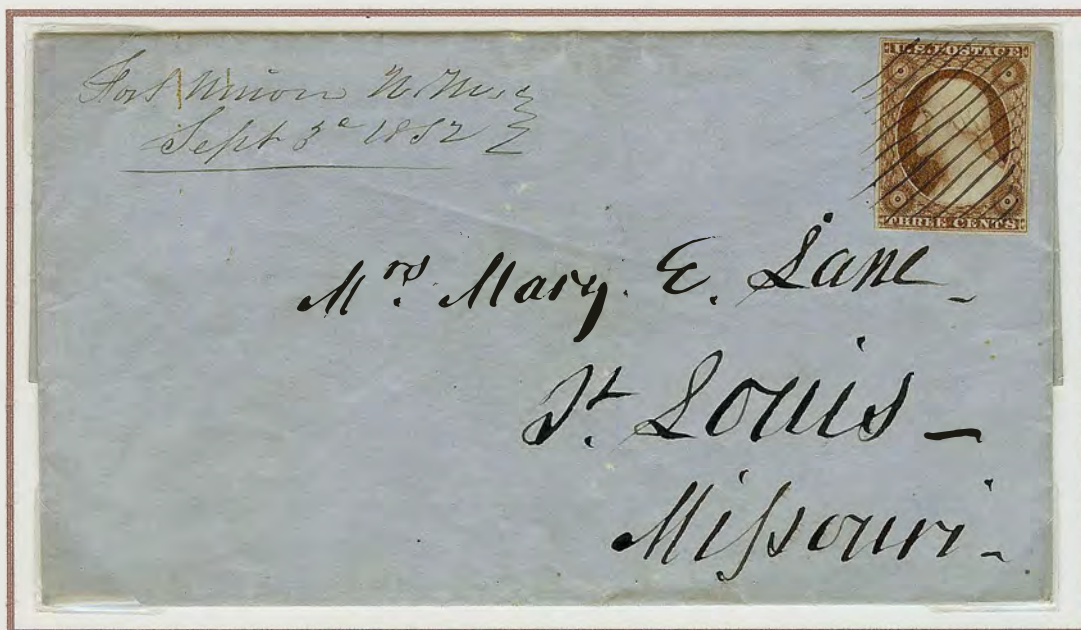 Fort Union N. Mex
Sept 3d 1852
U.S. POSTAGE
THREE CENTS
Mrs. Mary. E. Lane
St. Louis –
Missouri –